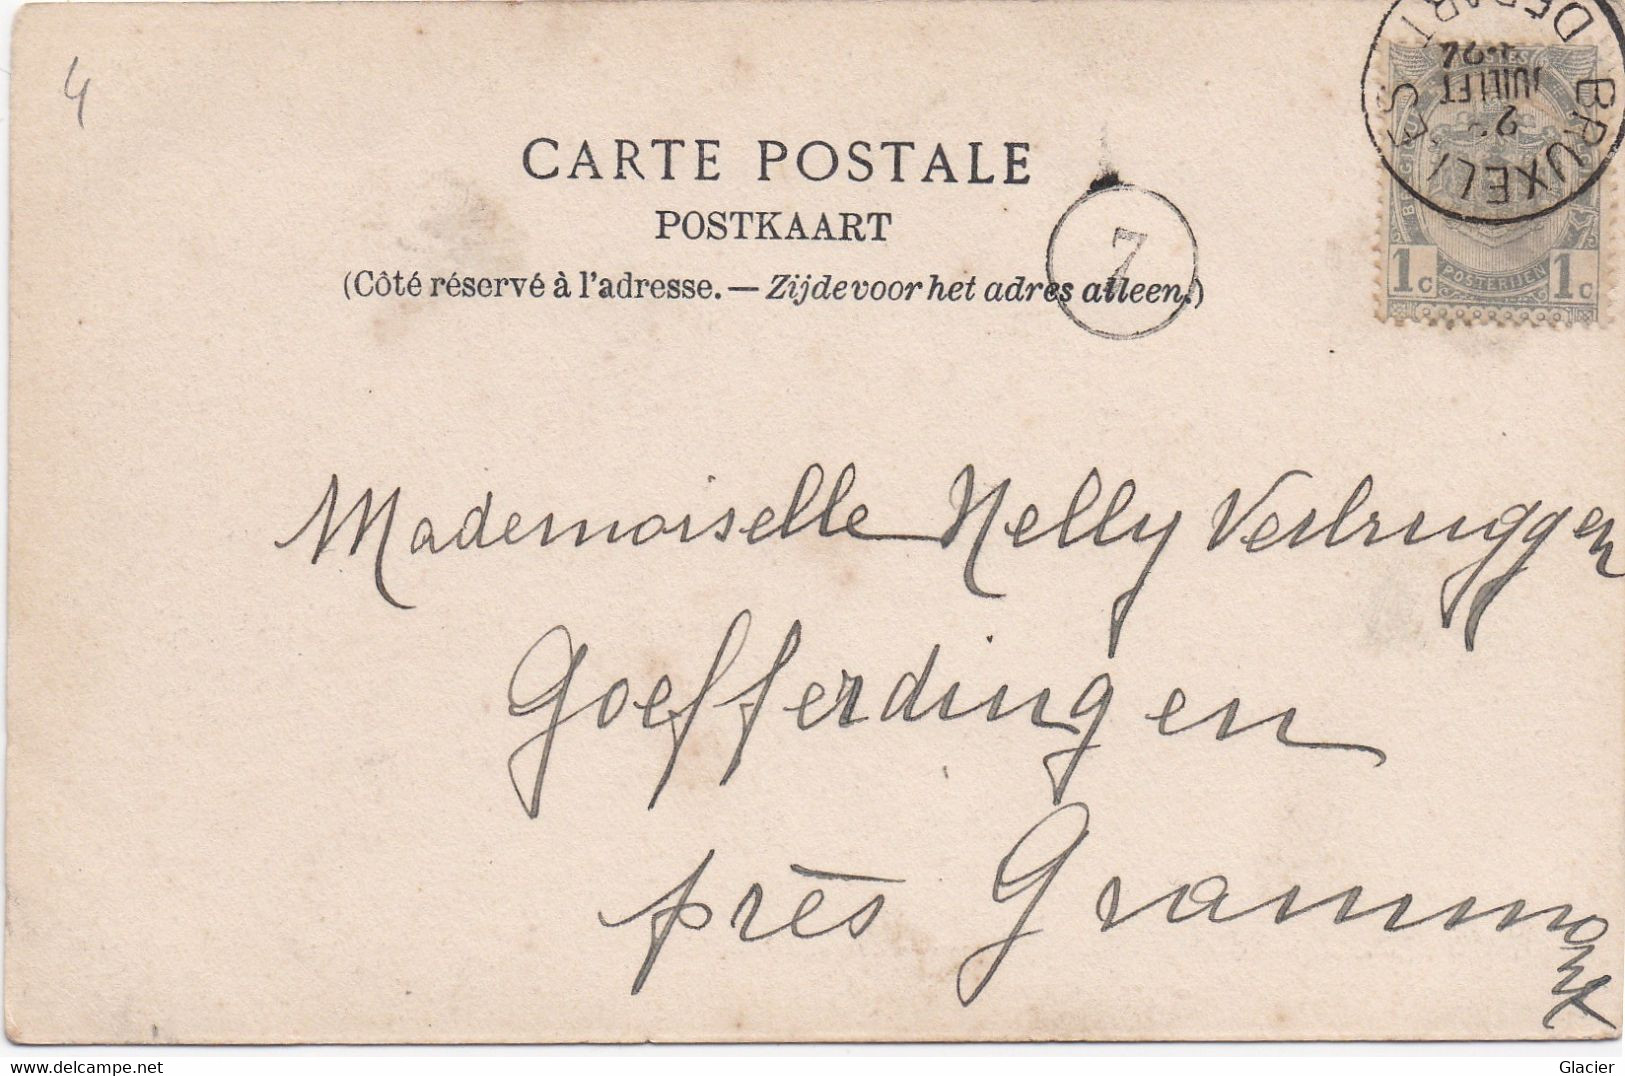 4
CARTE POSTALE
POSTKAART
(Côté réservé à l'adresse. — Zijde voor het adres alleen.)
7
BRUXELLES
DEPART
JUILLET
BELGIQUE
POSTES
1c POSTERIJEN 1c
Mademoiselle Nelly Verbruggen
Goefferdingen
près Grammont
delcampe.net
Glacier